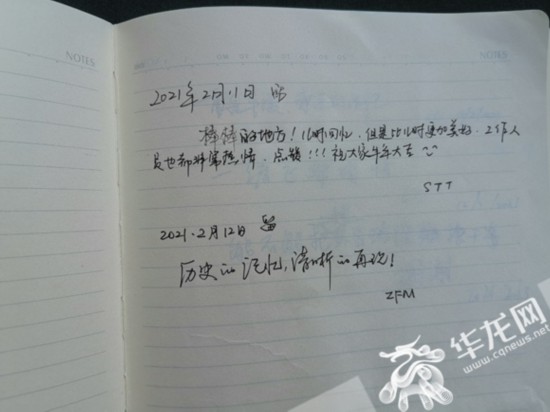 NOTES
NOTES
2021年2月11日
棒棒的地方！儿时回忆，但是比儿时更加美好，工作人
员也都非常热情，点赞！！！祝大家牛年大吉
STT
2021.2月12日 留
历史的记忆，清晰的再现！
ZFM
华龙网
www.cqnews.net